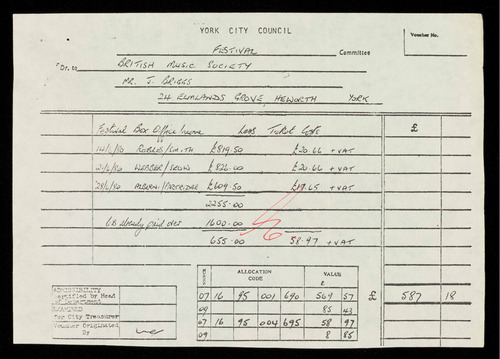 YORK CITY COUNCIL
Voucher No.
FESTIVAL Committee
Dr. to BRITISH MUSIC SOCIETY
MR. J. BRIGGS
24 ELMLANDS GROVE, HEWORTH YORK
Festival Box Office Income Less Ticket Costs £
14/6/86 ROBLES/SMITH £819.50 £20.66 + VAT
21/6/86 WEBBER/SNOW £826.00 £20.66 + VAT
28/6/86 ALBURN/PARTRIDGE £609.50 £17.65 + VAT
2255.00
LB already paid over 1600.00
655.00 58.97 + VAT
SOURCE ALLOCATION CODE VALUE
£
07 16 95 001 690 569 57 £ 587 18
09 85 43
07 16 95 004 695 58 97
09 8 85
ADMISSIBILITY
Certified by Head
of Department
EXAMINED
for City Treasurer
Voucher Originated
By